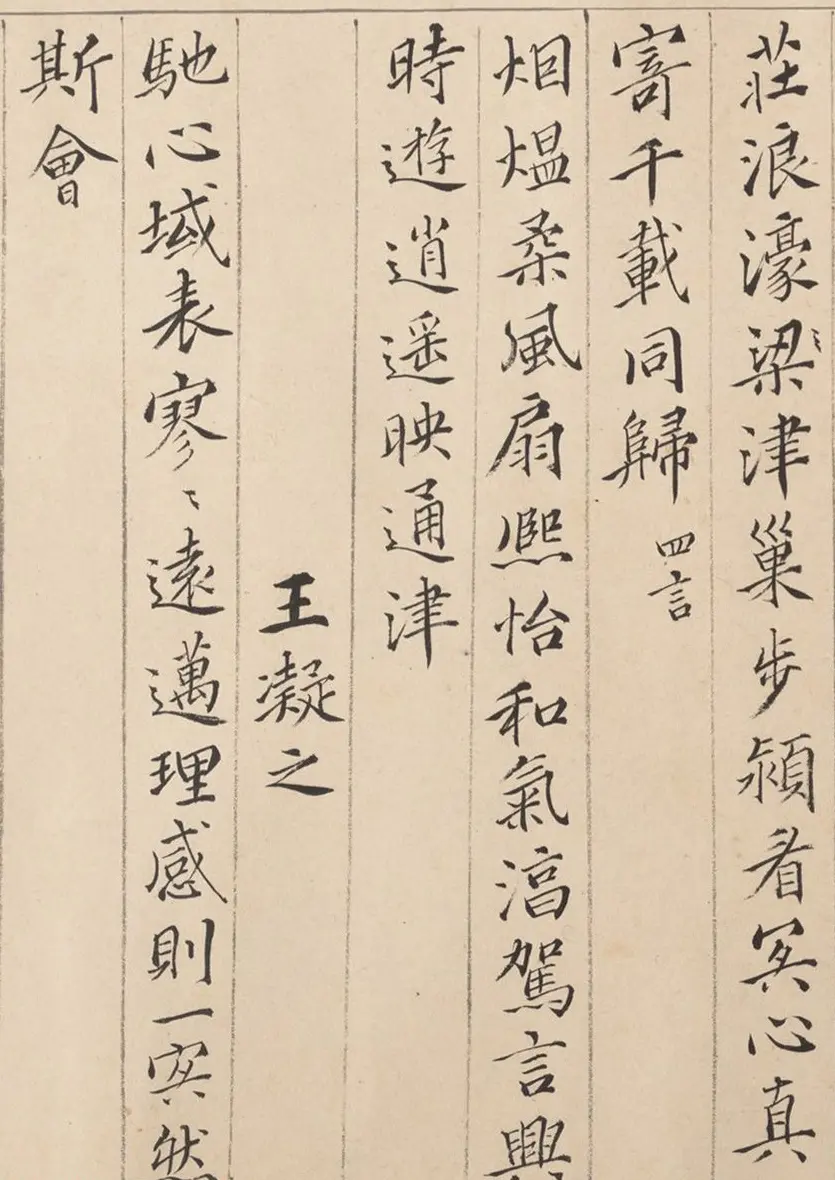 莊浪濠梁津巢步潁眉冥心真
寄千載同歸 四言
烟煴柔風扇熙怡和氣淳駕言興
時遊逍遥映通津
王凝之
馳心域表寥々遠邁理感則一冥然
斯會